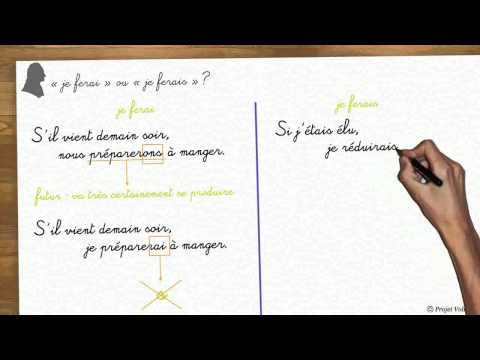 « je ferai » ou « je ferais » ?
je ferai
S'il vient demain soir,
nous préparerons à manger.
futur : va très certainement se produire
S'il vient demain soir,
je préparerai à manger.
je ferais
Si j'étais élu,
je réduirais
© Projet